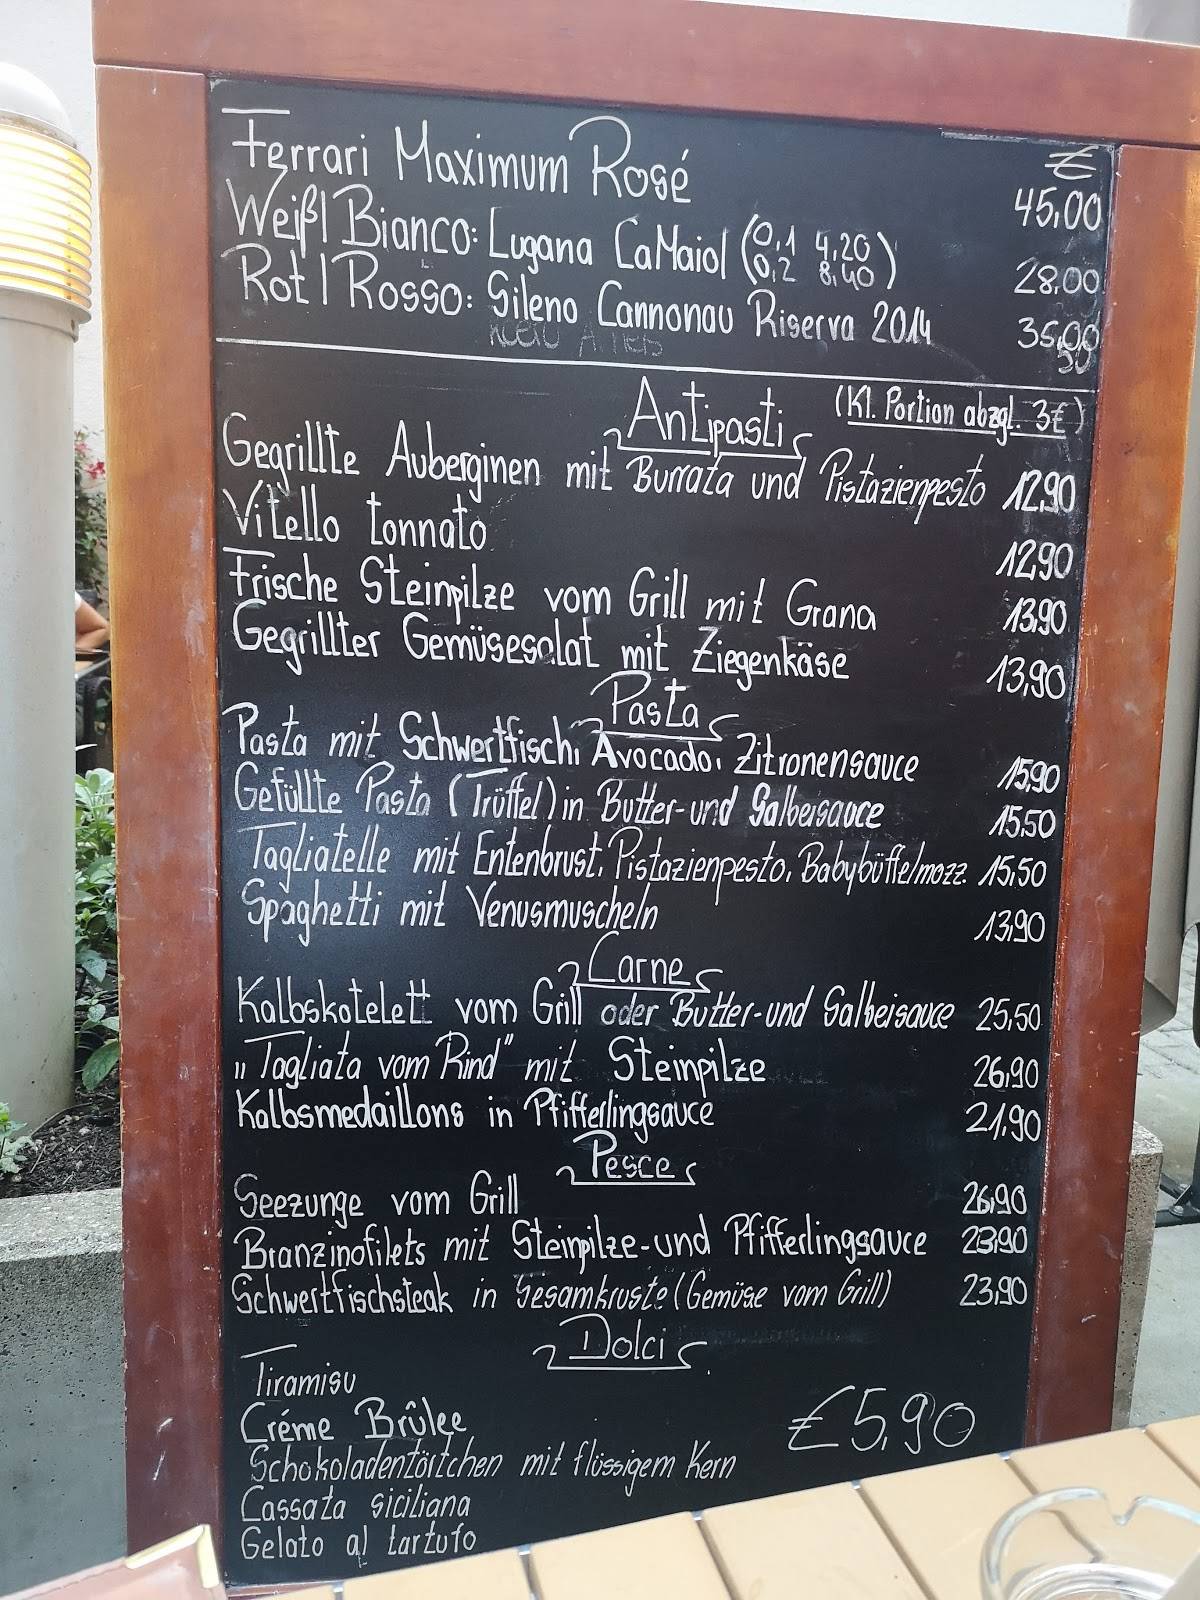 €
Ferrari Maximum Rosé 45,00
Weiß| Bianco: Lugana CaMaiol (0,1 4,20 28,00
0,2 8,40)
Rot | Rosso: Sileno Cannonau Riserva 2014 35,00
Antipasti (Kl. Portion abzgl. 3€)
Gegrillte Auberginen mit Burrata und Pistazienpesto 12,90
Vitello tonnato 12,90
Frische Steinpilze vom Grill mit Grana 13,90
Gegrillter Gemüsesalat mit Ziegenkäse 13,90
Pasta
Pasta mit Schwertfisch, Avocado, Zitronensauce 15,90
Gefüllte Pasta (Trüffel) in Butter-und Salbeisauce 15,50
Tagliatelle mit Entenbrust, Pistazienpesto, Babybüffelmozz. 15,50
Spaghetti mit Venusmuscheln 13,90
Carne
Kalbskotelett vom Grill oder Butter-und Salbeisauce 25,50
„Tagliata vom Rind" mit Steinpilze 26,90
Kalbsmedaillons in Pfifferlingsauce 21,90
Pesce
Seezunge vom Grill 26,90
Branzinofilets mit Steinpilze-und Pfifferlingsauce 23,90
Schwertfischsteak in Sesamkruste (Gemüse vom Grill) 23,90
Dolci
Tiramisu
Créme Brûlee €5,90
Schokoladentörtchen mit flüssigem Kern
Cassata siciliana
Gelato al tartufo